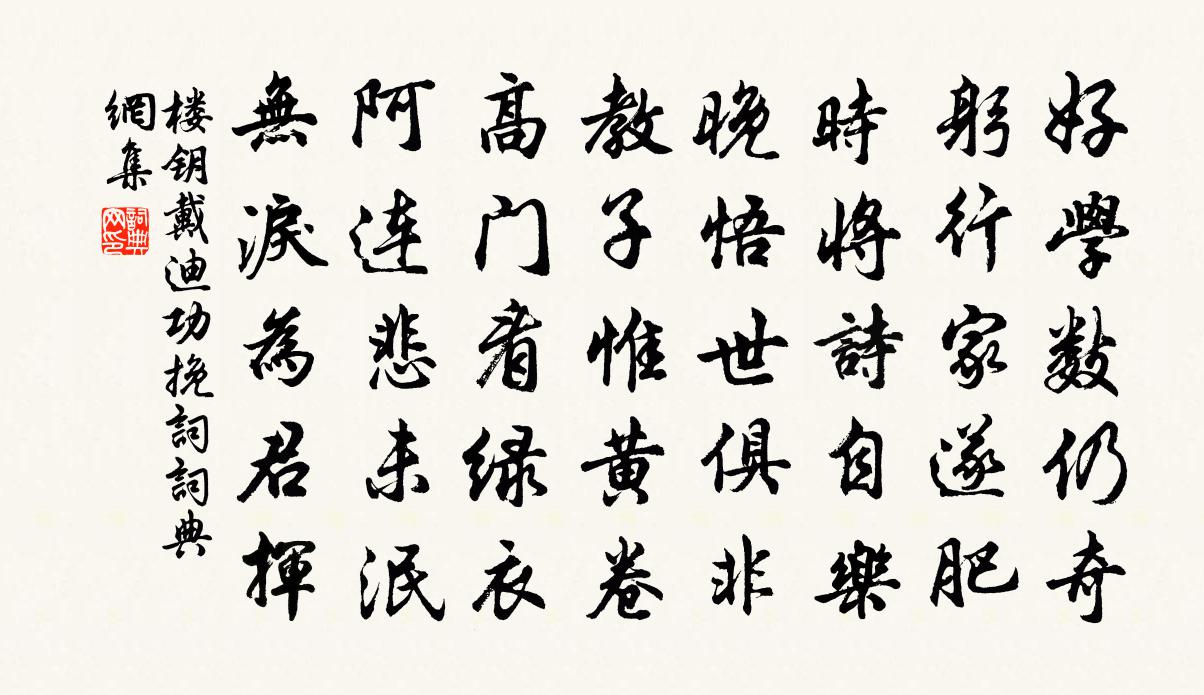 好學数仍奇
躬行家遂肥
時將詩自樂
晚悟世俱非
教子惟黄卷
高门看绿衣
阿连悲未泯
無淚為君揮
楼钥戴迪功挽詞詞典
網集
詞典
网印